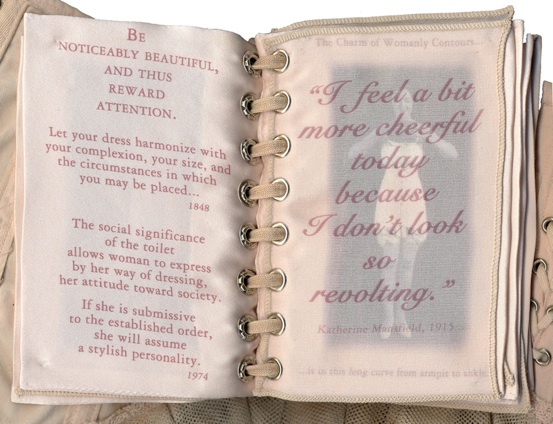 BE
NOTICEABLY BEAUTIFUL,
AND THUS
REWARD
ATTENTION.
Let your dress harmonize with
your complexion, your size, and
the circumstances in which
you may be placed...
1848
The social significance
of the toilet
allows woman to express
by her way of dressing,
her attitude toward society.
If she is submissive
to the established order,
she will assume
a stylish personality.
1974
The Charm of Womanly Contours...
“I feel a bit
more cheerful
today
because
I don't look
so
revolting.”
Katherine Mansfield, 1915
...is in this long curve from armpit to ankle.